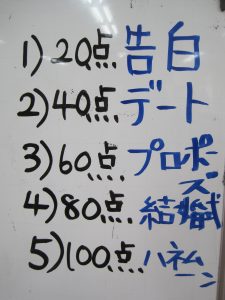 1)20点 告白
2)40点 デート
3)60点 プロポーズ
4)80点 結婚式
5)100点 ハネムーン